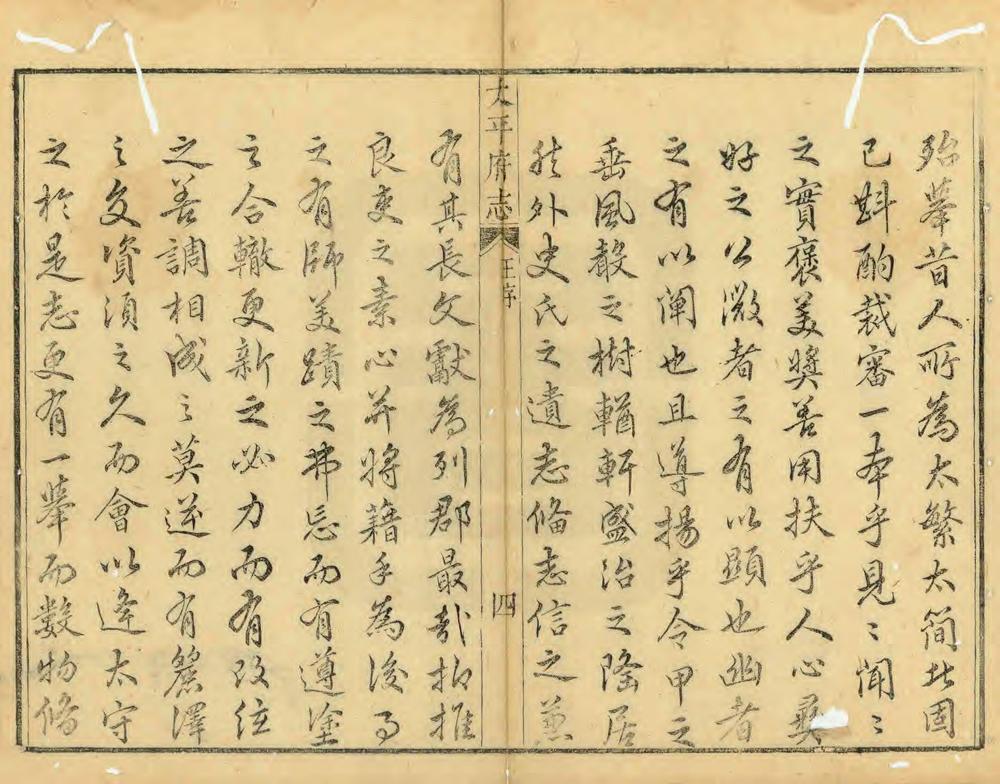 殆舉昔人所為太繁太簡此固
已斟酌裁審一本乎見〻聞〻
之實褒美獎善用扶乎人心彝
好之公微者之有以顯也幽者
之有以闡也且導揚乎令甲之
垂風聲之樹輶軒盛治之隆居
然外史氏之遺志脩志信之
太平府志
王序
四
有其長文獻為列郡最哉抑推
良吏之素心並將藉手為後
之有師美蹟之弗忘而有遵塗
之合轍更新之必力而有改弦
之善調相成之莫逆而有麗澤
之交資須之久而會以逢太守
之於是志更有一舉而數物脩